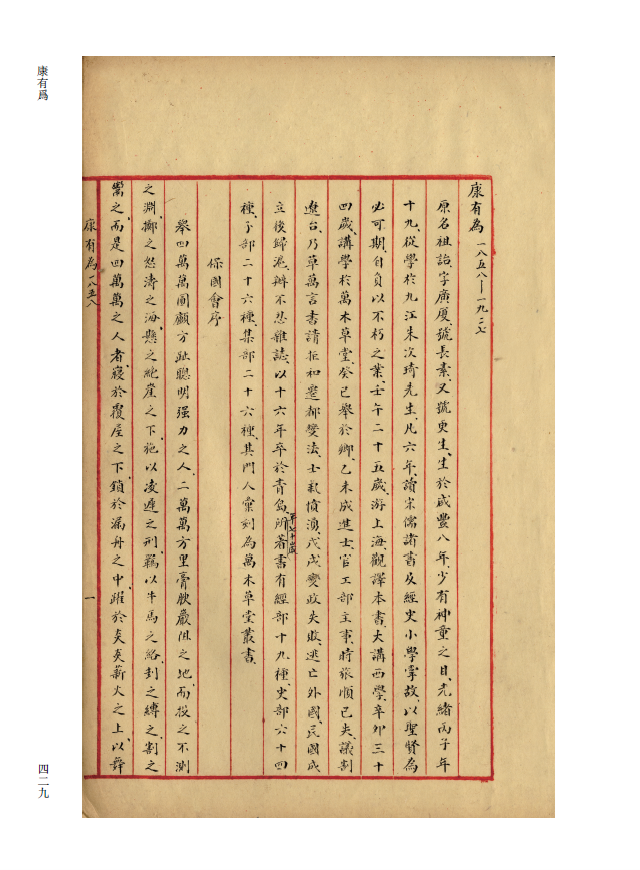 康有爲
康有為 一八五八—一九二七
原名祖詒、字廣廈、號長素、又號更生、生於咸豐八年、少有神童之目、光緒丙子年
十九、從學於九江朱次琦先生、凡六年、讀宋儒諸書及經史小學掌故、以聖賢為
必可期、自負以不朽之業、壬午二十五歲、游上海、觀譯本書、大講西學、辛卯三十
四歲、講學於萬木草堂、癸巳舉於鄉、乙未成進士、官工部主事、時旅順已失、議割
遼台、乃草萬言書請拒和遷都變法、士氣憤湧、戊戌變政失敗、逃亡外國、民國成
立後歸滬、辦不忍雜誌、以十六年卒於青島、年七十歲所著書有經部十九種、史部六十四
種、子部二十六種、集部二十六種、其門人彙刻為萬木草堂叢書、
保國會序
舉四萬萬圓顱方趾聰明强力之人、二萬萬方里膏腴巖阻之地、而投之不測
之淵、擲之怒濤之海、懸之絕崖之下、施以凌遲之刑、羈以牛馬之絡、刲之縛之割之
鬻之、而是四萬萬之人者、寢於覆屋之下、鎖於漏舟之中、躍於炎炎薪火之上、以舞
康有為 一八五八
一
四二九